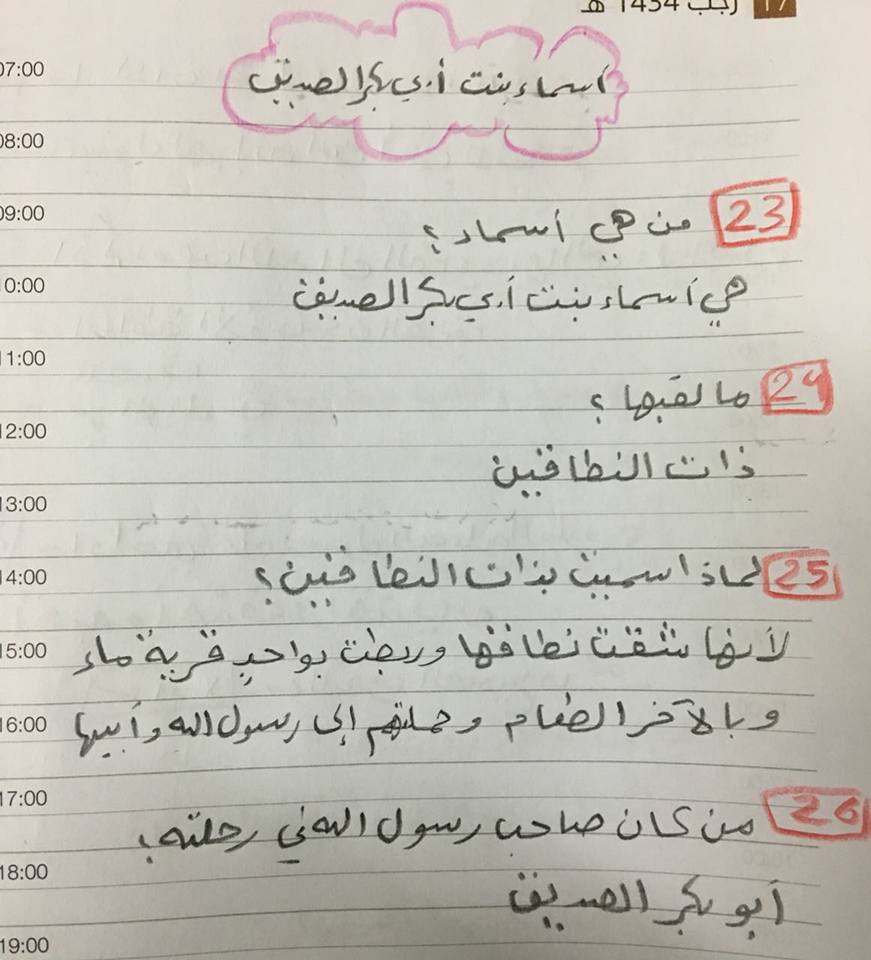 17 رجب 1434 هـ
أسماء بنت أبي بكر الصديق
07:00
08:00
09:00
23 من هي أسماء ؟
10:00
هي أسماء بنت أبي بكر الصديق
11:00
24 ما لقبها ؟
12:00
ذات النطاقين
13:00
25 لماذا اسميت بذات النطاقين ؟
14:00
لأنها شقت نطاقها وربطت بواحدٍ قربة ماء
15:00
وبالآخر الطعام وحملتهم إلى رسول الله وأبيها
16:00
17:00
26 من كان صاحب رسول الله في رحلته ؟
18:00
أبو بكر الصديق
19:00